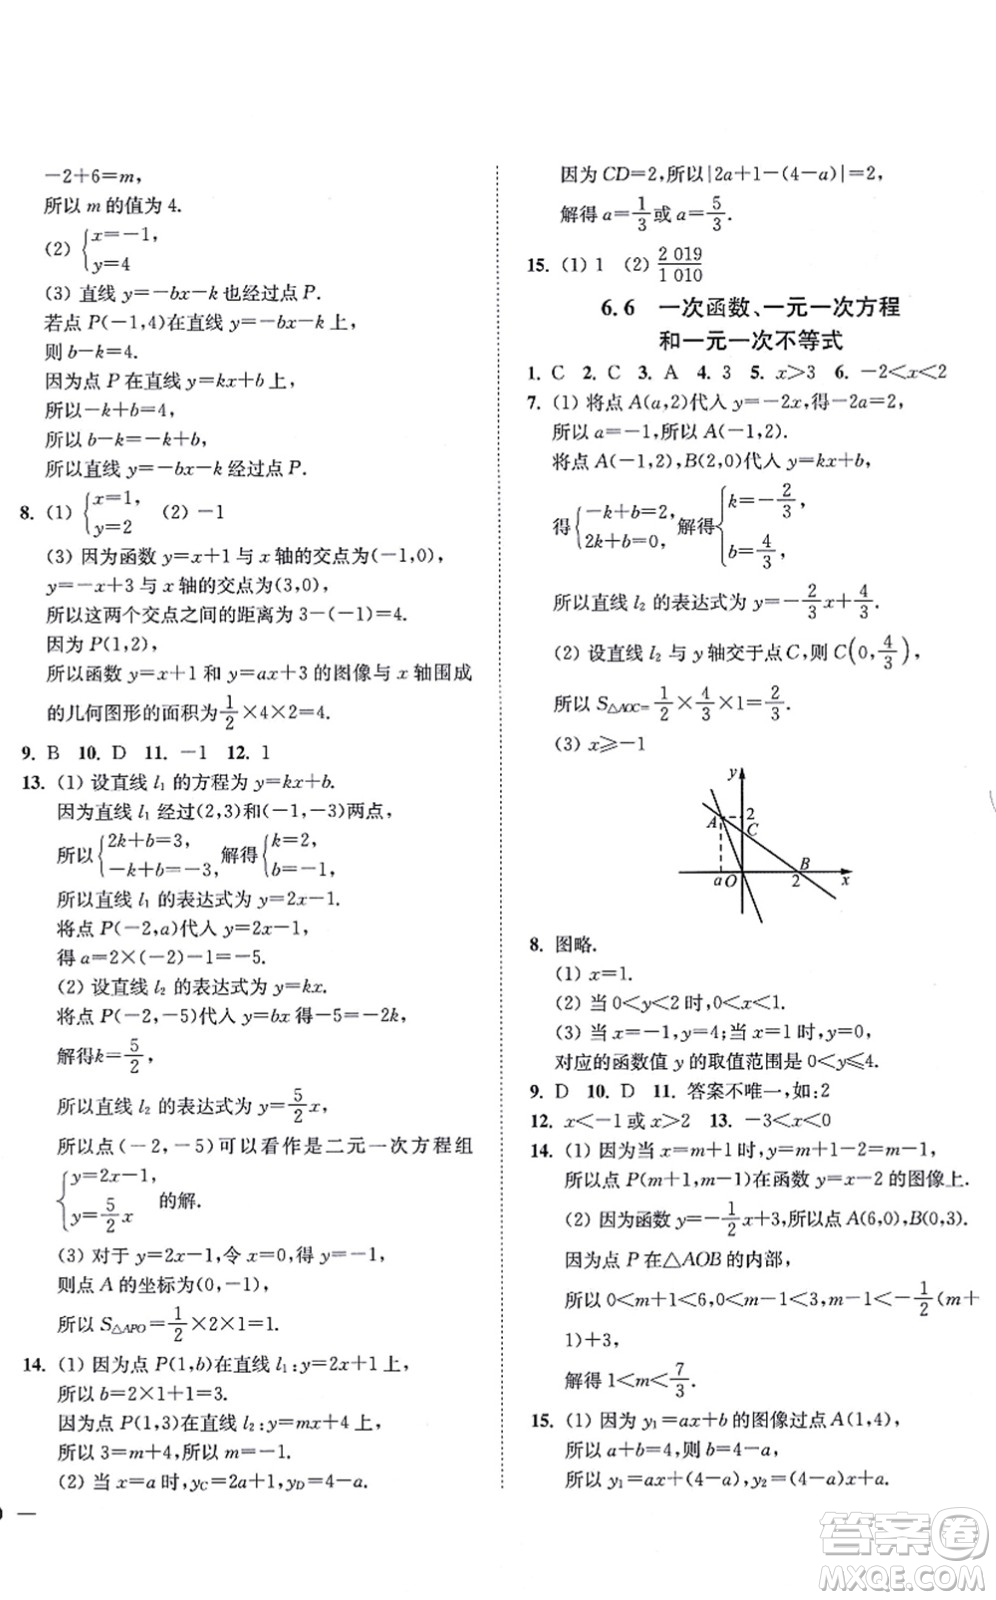 －2＋6＝m，
所以 m 的值为 4.
(2) {x＝－1，
y＝4
(3) 直线 y＝－bx－k 也经过点 P.
若点 P(－1,4)在直线 y＝－bx－k 上，
则 b－k＝4.
因为点 P 在直线 y＝kx＋b 上，
所以－k＋b＝4，
所以 b－k＝－k＋b，
所以直线 y＝－bx－k 经过点 P.
8. (1) {x＝1，
y＝2 (2) －1
(3) 因为函数 y＝x＋1 与 x 轴的交点为(－1,0)，
y＝－x＋3 与 x 轴的交点为(3,0)，
所以这两个交点之间的距离为 3－(－1)＝4.
因为 P(1,2)，
所以函数 y＝x＋1 和 y＝ax＋3 的图像与 x 轴围成
的几何图形的面积为1/2×4×2＝4.
9. B 10. D 11. －1 12. 1
13. (1) 设直线 l₁ 的方程为 y＝kx＋b.
因为直线 l₁ 经过(2,3)和(－1,－3)两点，
所以{2k＋b＝3， 解得{k＝2，
－k＋b＝－3， b＝－1，
所以直线 l₁ 的表达式为 y＝2x－1.
将点 P(－2,a)代入 y＝2x－1，
得 a＝2×(－2)－1＝－5.
(2) 设直线 l₂ 的表达式为 y＝kx.
将点 P(－2,－5)代入 y＝bx 得－5＝－2k，
解得k＝5/2，
所以直线 l₂ 的表达式为 y＝5/2x，
所以点(－2，－5)可以看作是二元一次方程组
{y＝2x－1，
y＝5/2x 的解.
(3) 对于 y＝2x－1,令 x＝0,解得 y＝－1，
则点 A 的坐标为(0,－1)，
所以 S△APO＝1/2×2×1＝1.
14. (1) 因为点 P(1,b)在直线 l₁:y＝2x＋1 上，
所以 b＝2×1＋1＝3.
因为点 P(1,3)在直线 l₂:y＝mx＋4 上，
所以 3＝m＋4,所以 m＝－1.
(2) 当 x＝a 时,yC＝2a＋1,yD＝4－a.
因为 CD＝2,所以|2a＋1－(4－a)|＝2，
解得 a＝1/3或 a＝5/3.
15. (1) 1 (2) 2 019/1 010
6.6 一次函数、一元一次方程
和一元一次不等式
1. C 2. C 3. A 4. 3 5. x＞3 6. －2＜x＜2
7. (1) 将点 A(a,2)代入 y＝－2x,得－2a＝2，
所以 a＝－1,所以 A(－1,2).
将点 A(－1,2),B(2,0)代入 y＝kx＋b，
得{－k＋b＝2， 解得{k＝－2/3，
2k＋b＝0， b＝4/3，
所以直线 l₂ 的表达式为 y＝－2/3x＋4/3.
(2) 设直线 l₂ 与 y 轴交于点 C,则 C(0,4/3)，
所以 S△AOC＝1/2×4/3×1＝2/3.
(3) x≥－1
y
A 2
C
B
a O 2 x
8. 图略.
(1) x＝1.
(2) 当 0＜y＜2 时,0＜x＜1.
(3) 当 x＝－1,y＝4;当 x＝1 时,y＝0.
对应的函数值 y 的取值范围是 0＜y≤4.
9. D 10. D 11. 答案不唯一,如:2
12. x＜－1 或 x＞2 13. －3＜x＜0
14. (1) 因为当 x＝m＋1 时,y＝m＋1－2＝m－1，
所以点 P(m＋1,m－1)在函数 y＝x－2 的图像上.
(2) 因为函数 y＝－1/2x＋3,所以点 A(6,0),B(0,3).
因为点 P 在△AOB 的内部，
所以 0＜m＋1＜6,0＜m－1＜3,m－1＜－1/2(m＋
1)＋3，
解得 1＜m＜7/3.
15. (1) 因为 y₁＝ax＋b 的图像过点 A(1,4)，
所以 a＋b＝4,则 b＝4－a，
所以 y₁＝ax＋(4－a),y₂＝(4－a)x＋a.
答案卷
MXQE.COM